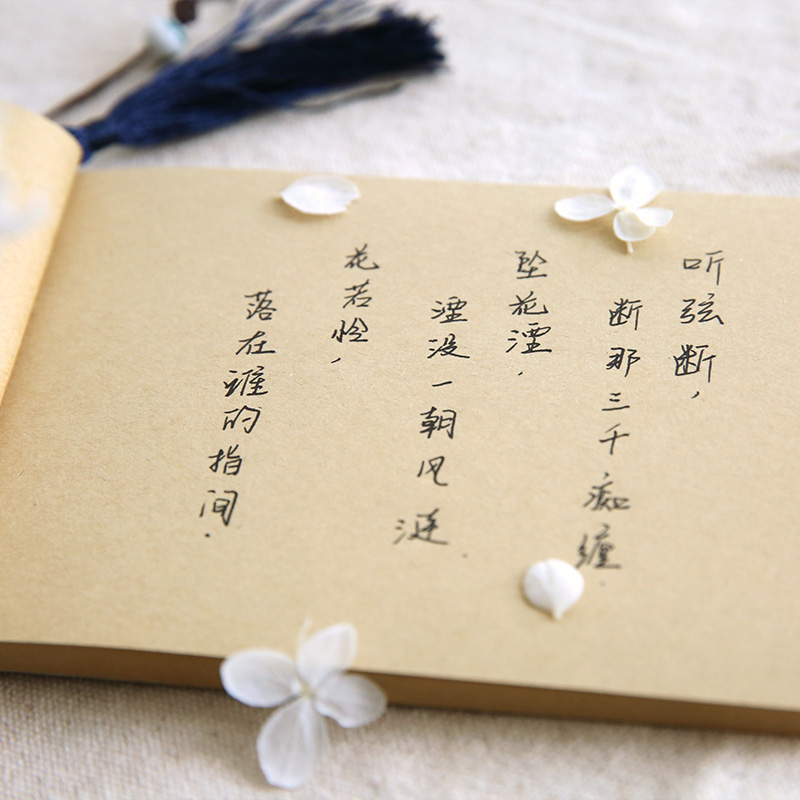 听弦断，
断那三千痴缠.
坠花湮，
湮没一朝风涟.
花若怜，
落在谁的指间.